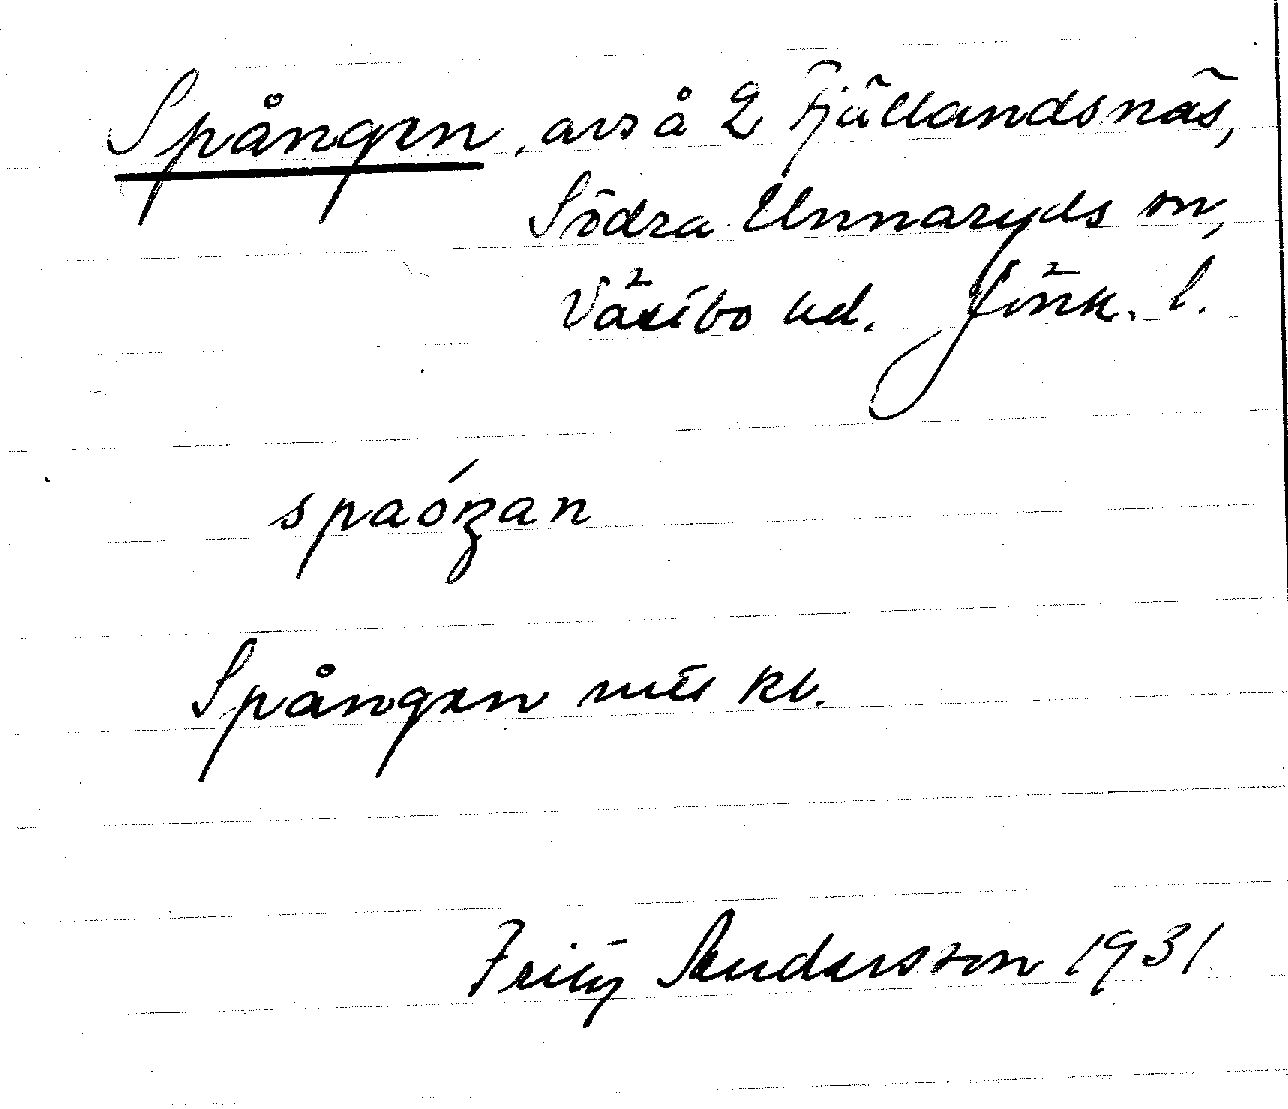 Spången, avs å 2 Fjällandsnäs,
Södra Unnaryds sn,
Västbo hd. Jönk. l.
spaóŋan
Spången
Fritz Andersson 1931